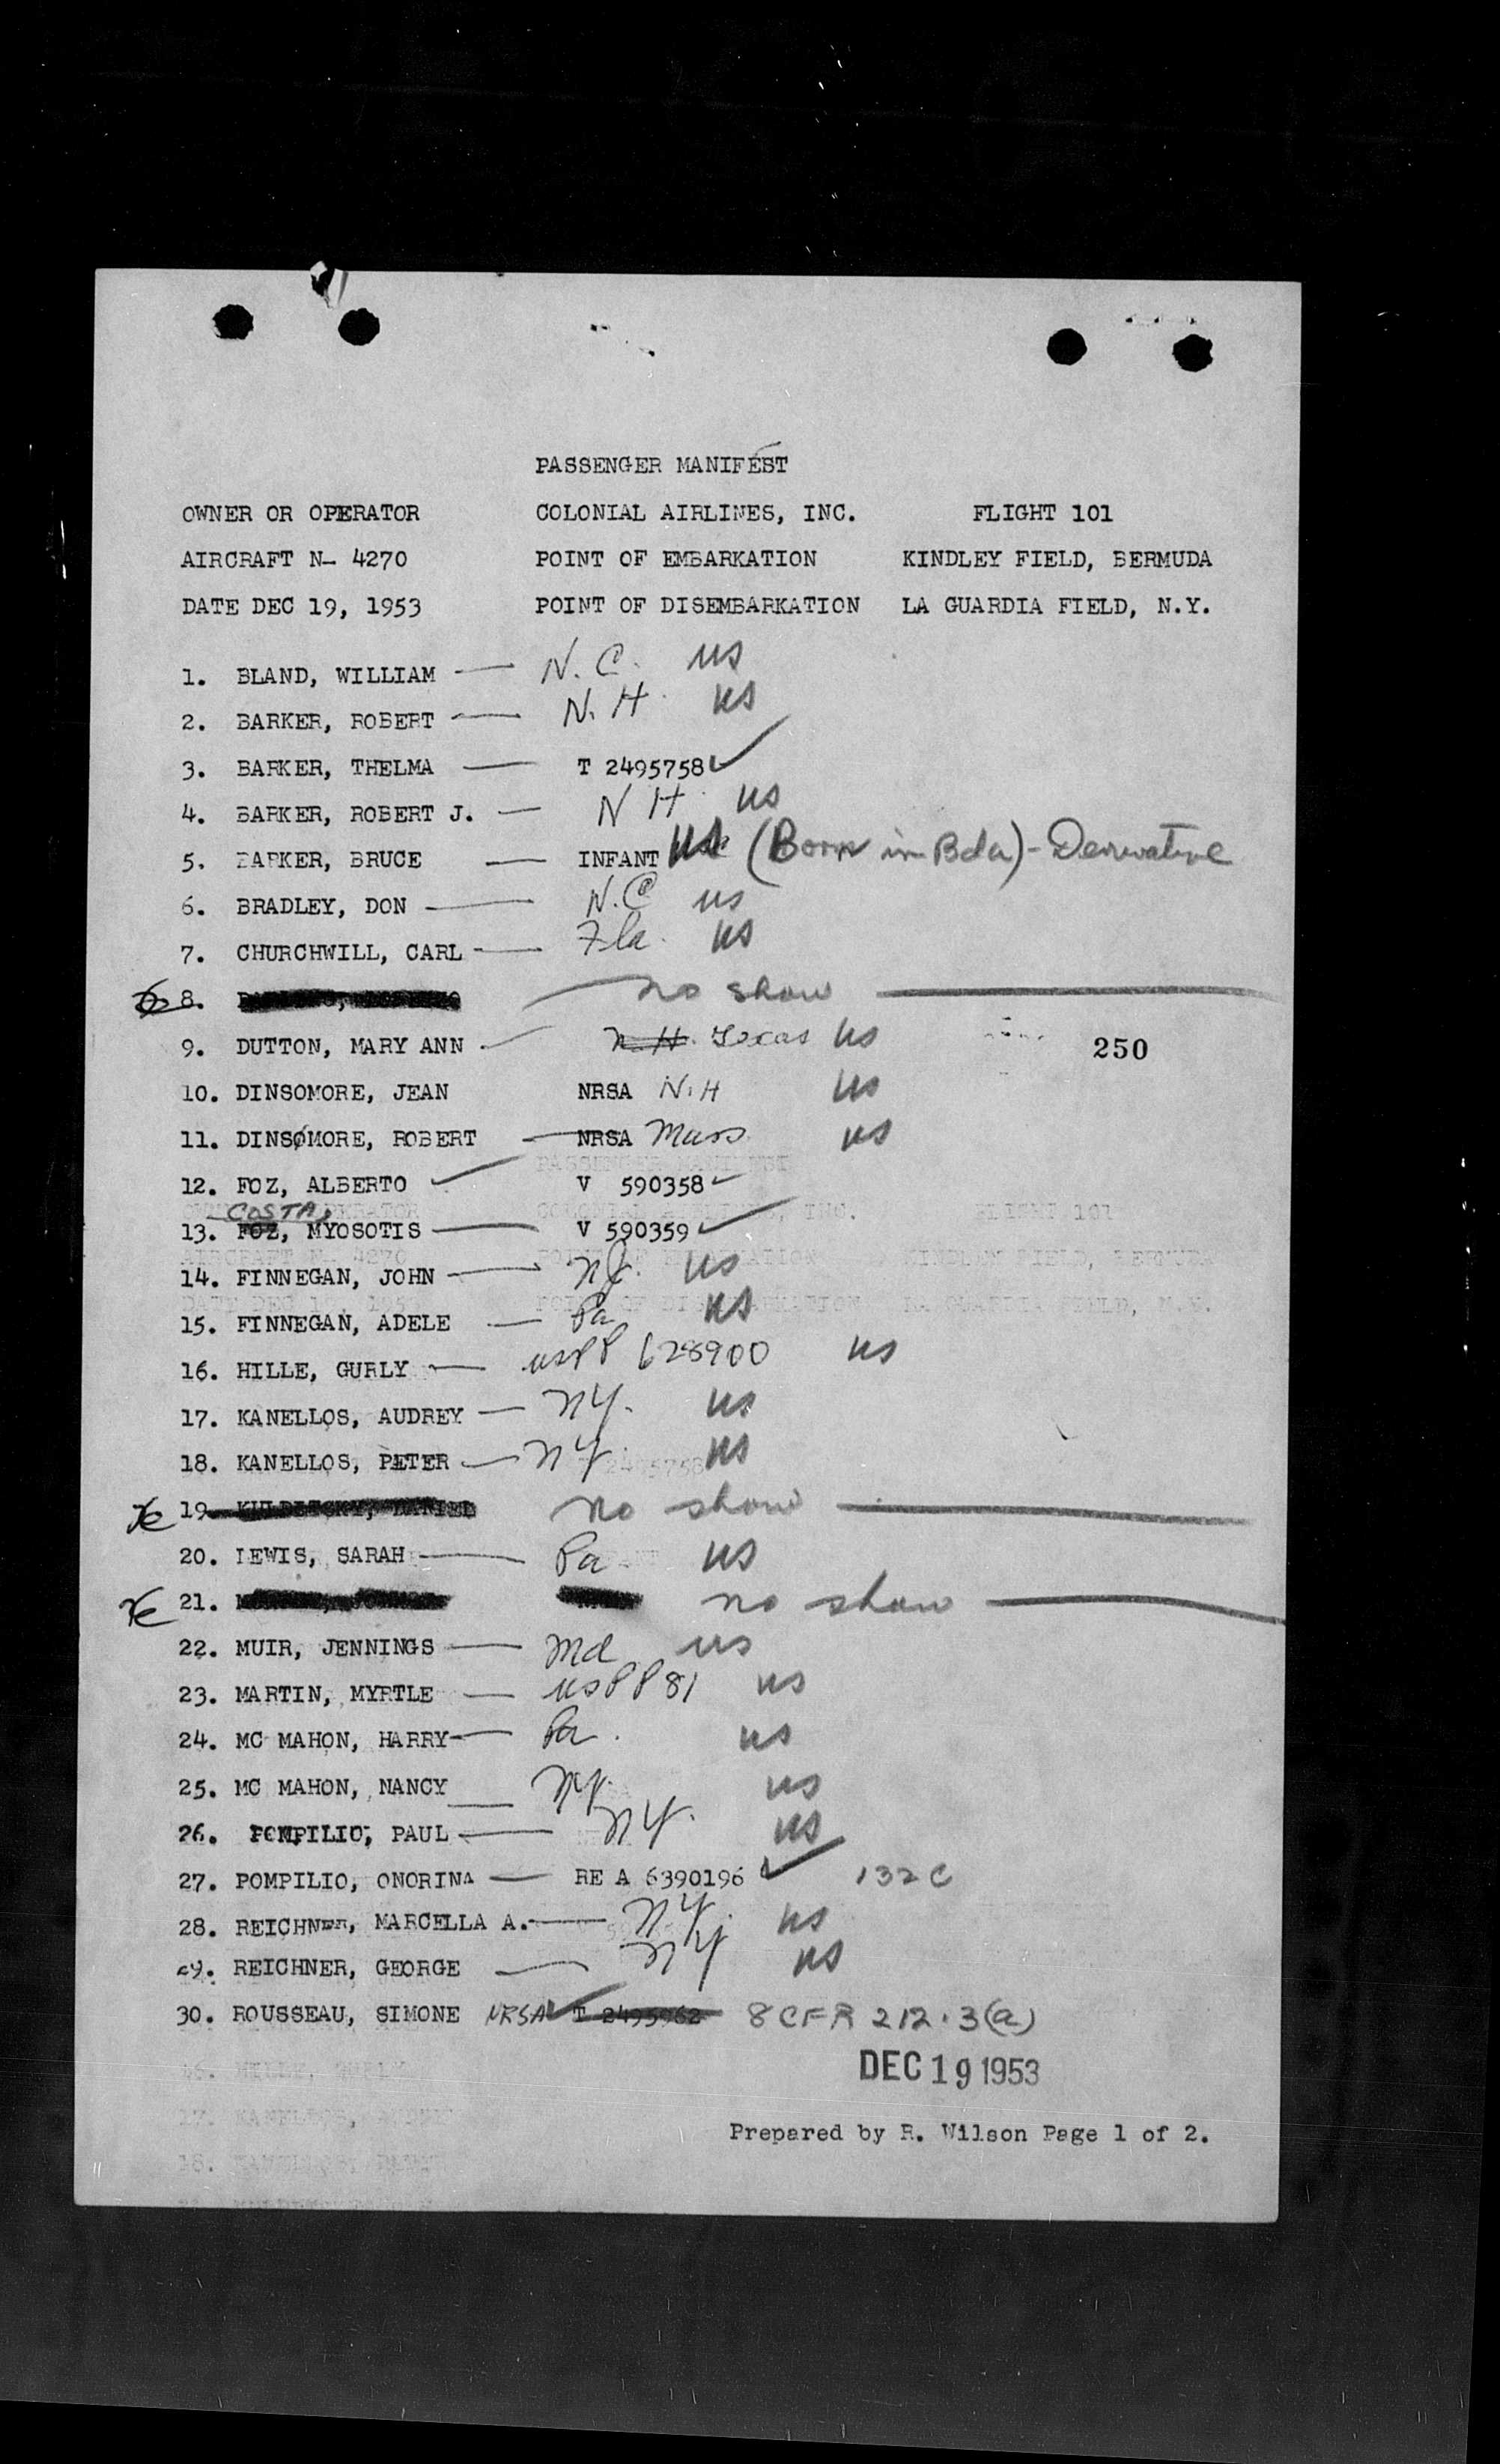 PASSENGER MANIFEST
OWNER OR OPERATOR COLONIAL AIRLINES, INC. FLIGHT 101
AIRCRAFT N- 4270 POINT OF EMBARKATION KINDLEY FIELD, BERMUDA
DATE DEC 19, 1953 POINT OF DISEMBARKATION LA GUARDIA FIELD, N.Y.
1. BLAND, WILLIAM — N.C. US
2. BARKER, ROBERT — N.H. US
3. BARKER, THELMA — T 2495758 ✓
4. BARKER, ROBERT J. — N H US
5. BARKER, BRUCE — INFANT US (Born in Bda) - Derivative
6. BRADLEY, DON — N.C US
7. CHURCHWILL, CARL — Fla. US
8. no show
9. DUTTON, MARY ANN N.H. Texas US
250
10. DINSOMORE, JEAN NRSA N.H US
11. DINSOMORE, ROBERT — NRSA Mass US
12. FOZ, ALBERTO ✓ V 590358 ✓
COSTA,
13. FOZ, MYOSOTIS — V 590359 ✓
14. FINNEGAN, JOHN — NJ. US
15. FINNEGAN, ADELE — Pa US
16. HILLE, GURLY — USPP 628900 US
17. KANELLOS, AUDREY — NY. US
18. KANELLOS, PETER — NY. US
19 no show
20. LEWIS, SARAH — Pa US
21. no show
22. MUIR, JENNINGS — Md US
23. MARTIN, MYRTLE — USPP 81 US
24. MC MAHON, HARRY — Pa. US
25. MC MAHON, NANCY — NY. US
26. POMPILIO, PAUL — NY. US
27. POMPILIO, ONORINA — RE A 6390196 ✓ 132 C
28. REICHNER, MARCELLA A. — NY. US
29. REICHNER, GEORGE — NY US
30. ROUSSEAU, SIMONE NRSA ✓ T 2495962 8 CFR 212.3(a)
DEC 19 1953
Prepared by R. Wilson Page 1 of 2.